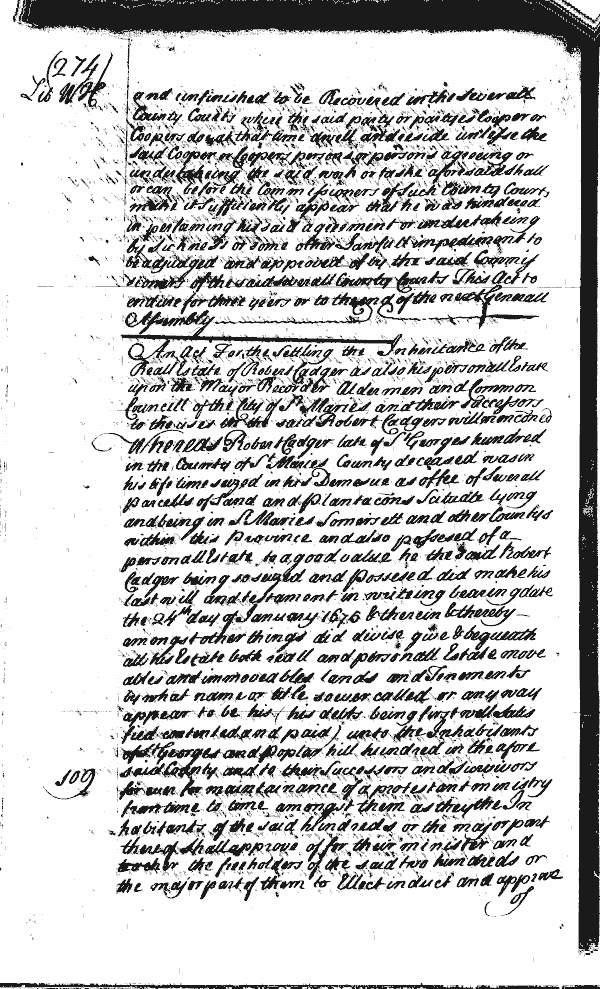 (274)
Lib WH
and unfinished to be Recovered in the severall
County Courts where the said party or partyes Cooper or
Coopers doe at that time dwell and reside unlesse the
said Cooper or Coopers person or persons agreeing or
undertakeing the said work or taske aforesaid shall
or can before the Commissioners of such County Court,
make it sufficiently appear that he was hindered
in performing his said agreement or undertakeing
by sickness or some other Lawfull impediment to
be adjudged and approved of by the said Commis
sioners of the said severall County Courts This Act to
endure for three years or to the end of the next Generall
Assembly
An Act For the Settling the Inheritance of the
Reall Estate of Robert Cadger as also his personall Estate
upon the Mayor Recorder Aldermen and Common
Councill of the City of St Maries and their successors
to the uses in the said Robert Cadgers will menconed
Whereas Robert Cadger late of St Georges hundred
in the County of St Maries County deceased was in
his life time seized in his Demesne as of fee of Severall
parcells of Land and plantacons Scituate lyong
and being in St Maries Somersett and other Countys
within this Province and also possesed of a
personall Estate to a good value he the said Robert
Cadger being so seized and possesed did make his
last will and testament in writeing bearing date
the 24th day of January 1675 & therein & thereby
amongst other things did divise give & bequeath
all his Estate both reall and personall Estate move
ables and immoveables lands and Tenements
by what name or title soever called or any way
appear to be his (his debts being first well satis
fied contented and paid) unto the Inhabitants
of St Georges and poplar hill hundred in the afore
said County and to their Successors and survivors
for ever for maintainance of a protestant ministry
from time to time amongst them as they the In
habitants of the said hundreds or the major part
thereof shall approve of for their minister and
the freeholders of the said two hundreds or
the major part of them to Elect induct and approve
of
109